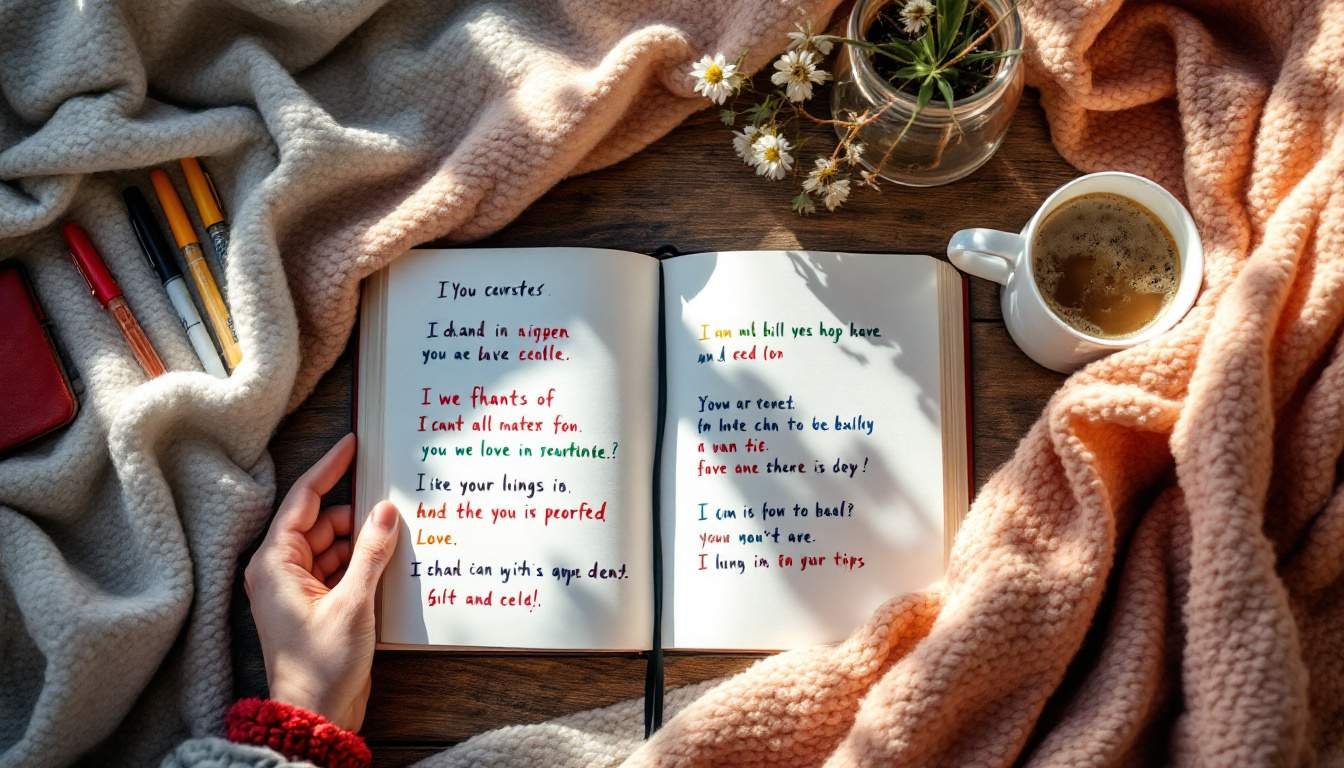 I You cavrstes.
I chand in nigpen
you ae lave cealle.
I we fhants of
I cant all matex fon.
you we love in reurtinie.?
I ike your lnings io.
hnd the you is peorfed
Love.
I chad can with's ape dent.
Gilt and celd!.
I am mt bill yes hop have
and ced lon
Yovw ar tovet.
fn lnde chn to be bally
a van tie.
fave ane there is dey!
I cm is fow to baal?
youn non't are.
I lung in in your tips